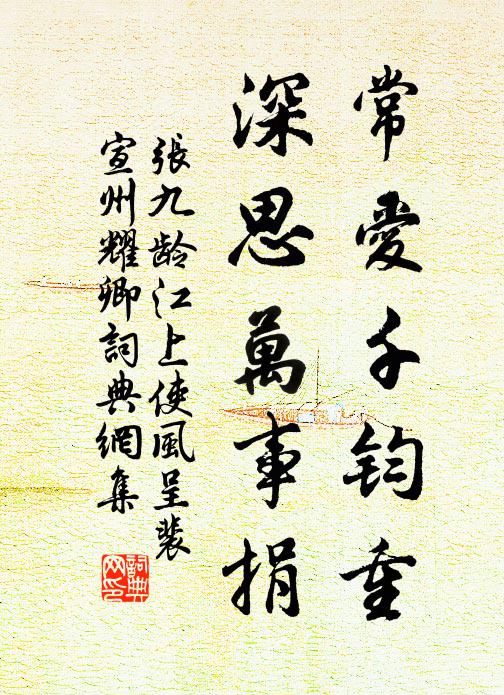 常愛千鈞重
深思萬事捐
張九齡江上使風呈裴
宣州耀卿詞典網集
詞典
网印